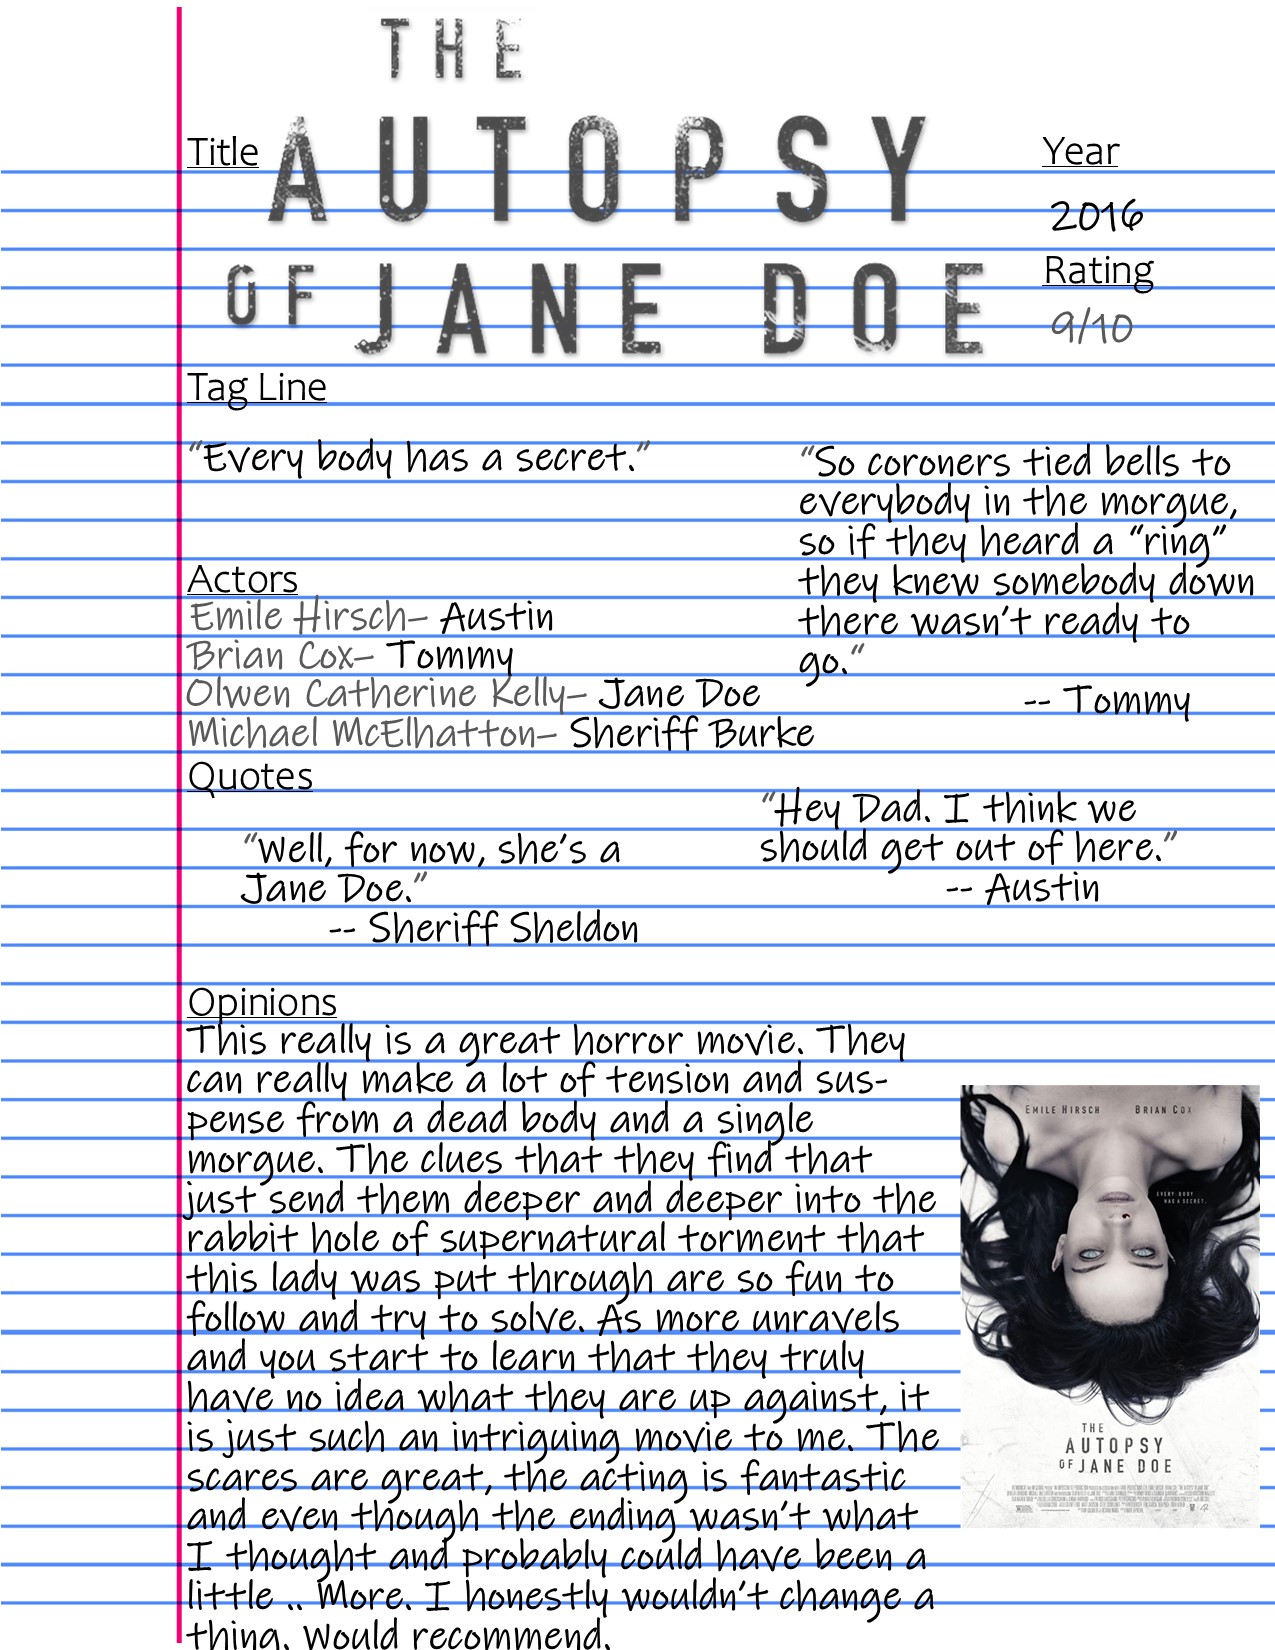 THE
Title AUTOPSY
OF JANE DOE
Year
2016
Rating
9/10
Tag Line
"Every body has a secret."
"So coroners tied bells to
everybody in the morgue,
so if they heard a "ring"
they knew somebody down
there wasn't ready to
go."
-- Tommy
Actors
Emile Hirsch– Austin
Brian Cox– Tommy
Olwen Catherine Kelly– Jane Doe
Michael McElhatton– Sheriff Burke
Quotes
"Well, for now, she's a
Jane Doe."
-- Sheriff Sheldon
"Hey Dad. I think we
should get out of here."
-- Austin
Opinions
This really is a great horror movie. They
can really make a lot of tension and sus-
pense from a dead body and a single
morgue. The clues that they find that
just send them deeper and deeper into the
rabbit hole of supernatural torment that
this lady was put through are so fun to
follow and try to solve. As more unravels
and you start to learn that they truly
have no idea what they are up against, it
is just such an intriguing movie to me. The
scares are great, the acting is fantastic
and even though the ending wasn't what
I thought and probably could have been a
little .. More. I honestly wouldn't change a
thing. Would recommend.
EMILE HIRSCH BRIAN COX
EVERY BODY
HAS A SECRET.
THE
AUTOPSY
OF JANE DOE